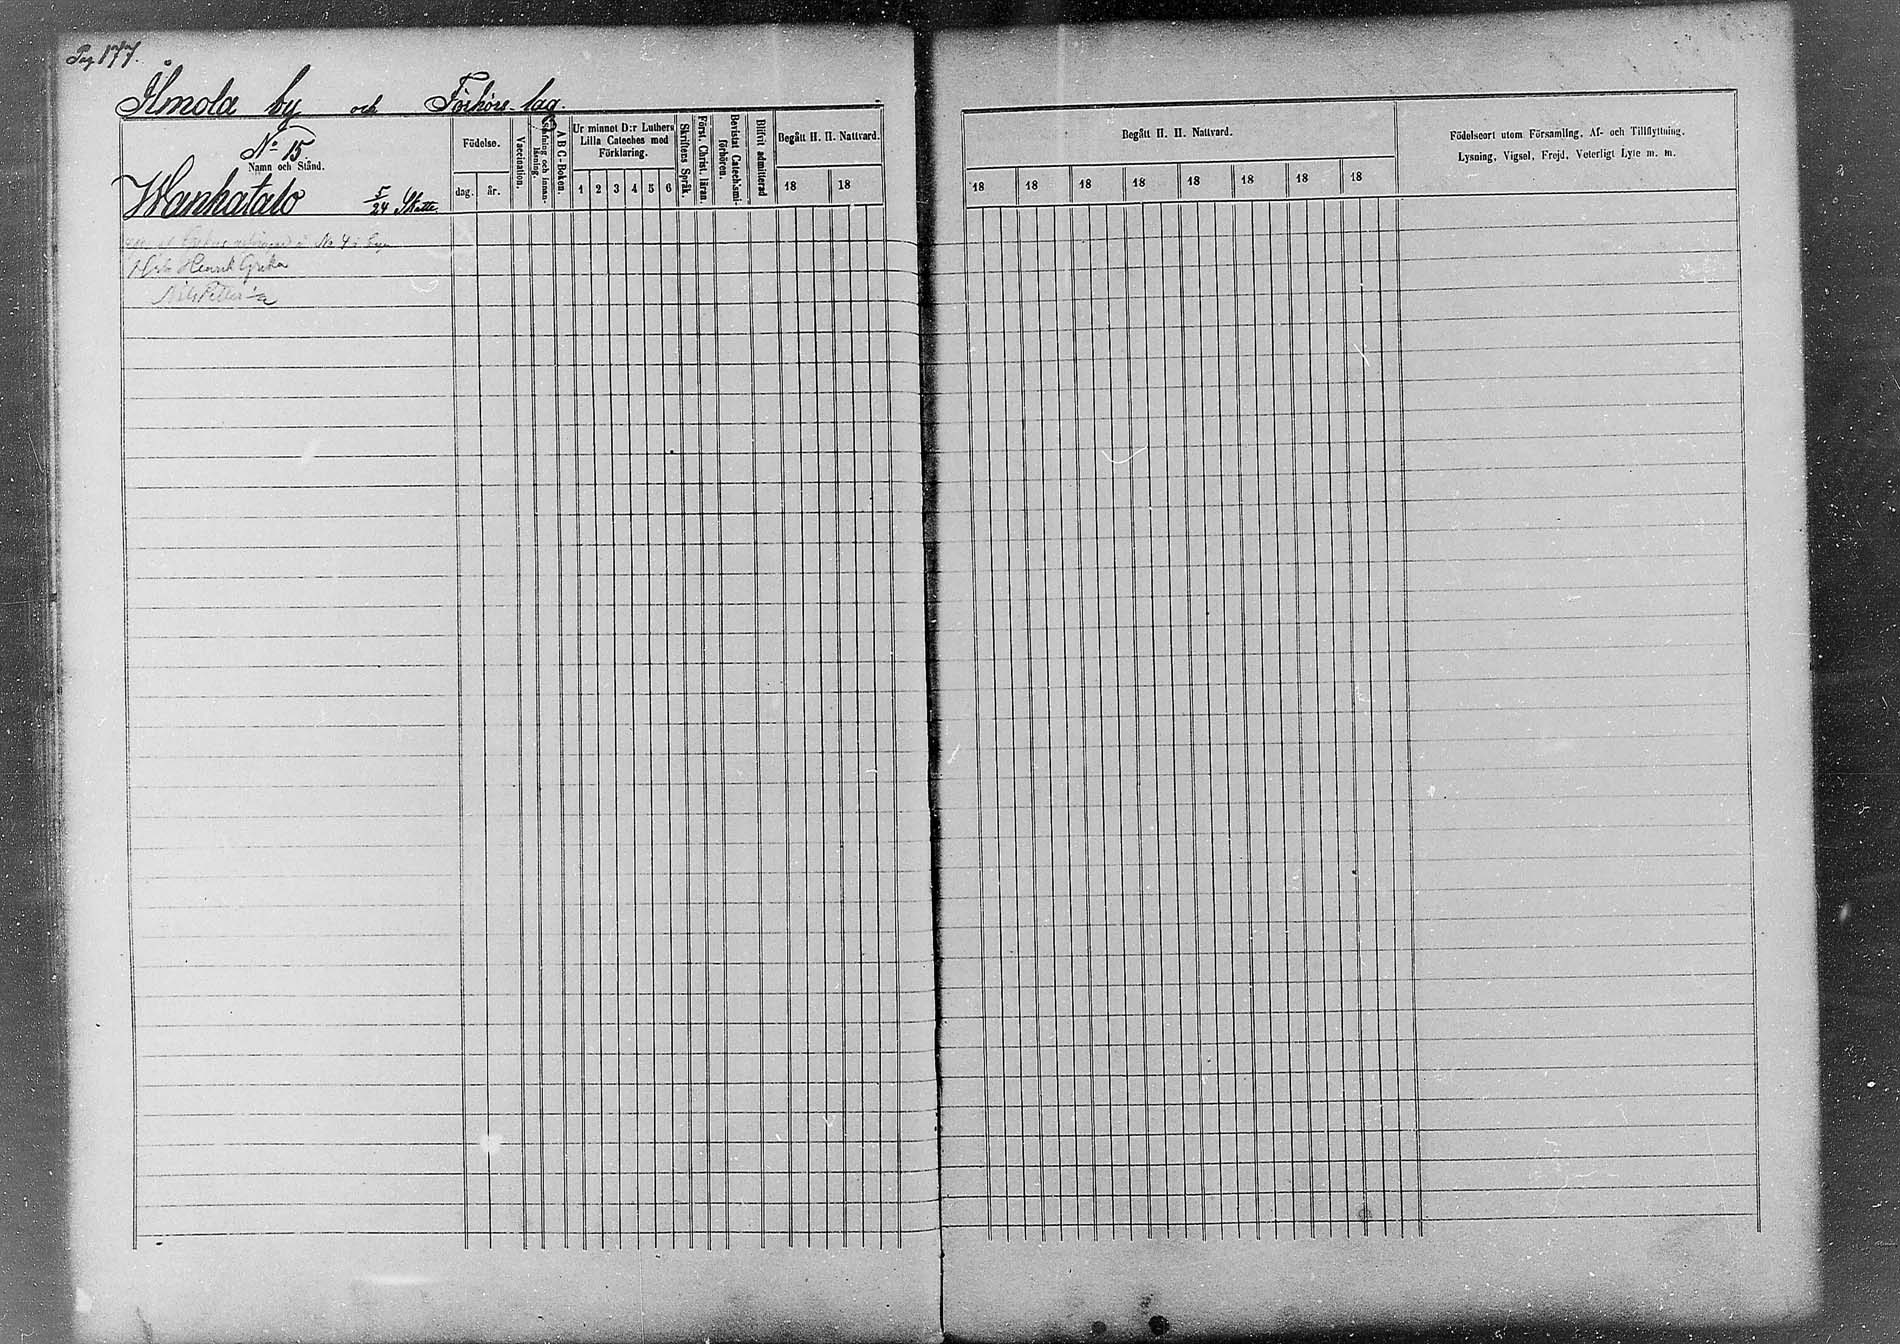 Pag 177.
Ilmola by och Förhörs-lag.
No 15.
Namn och Stånd.
Wanhatalo 5/24 Skatte.
Födelse.
dag. år.
Vaccination.
Stafning och innan-läsning.
A B C-Boken.
Ur minnet D:r Luthers
Lilla Cateches med
Förklaring.
1 2 3 4 5 6
Skriftens Språk.
Först. Christ. läran.
Bevistat Catechismi-förhören.
Blifvit admitterad
Begått H. H. Nattvard.
18 18
Begått H. H. Nattvard.
18 18 18 18 18 18 18 18
Födelseort utom Församling, Af- och Tillflyttning,
Lysning, Vigsel, Frejd, Veterligt Lyte m. m.
No 4 i
Henrik